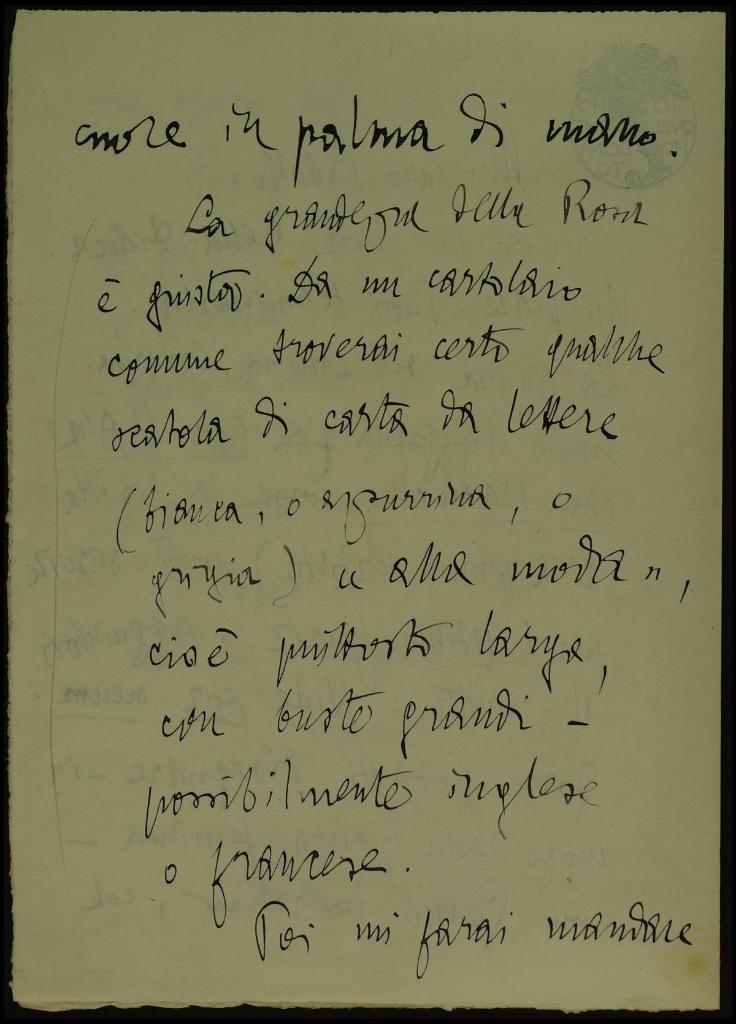 cuore in palma di mano.
La grandezza della Rosa
è giusta. Da un cartolaio
comune troverai certo qualche
scatola di carta da lettere
(bianca, o azzurrina, o
grigia) « alla moda »,
cioè piuttosto larga,
con buste grandi –
possibilmente inglese
o francese.
Poi mi farai mandare